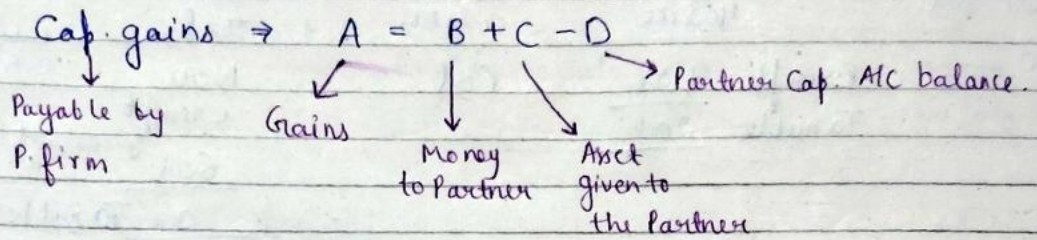 Cap. gains ⇒ A = B + C - D
Partner Cap. A/C balance.
Payable by
P. firm
Gains
Money
to Partner
Asset
given to
the Partner